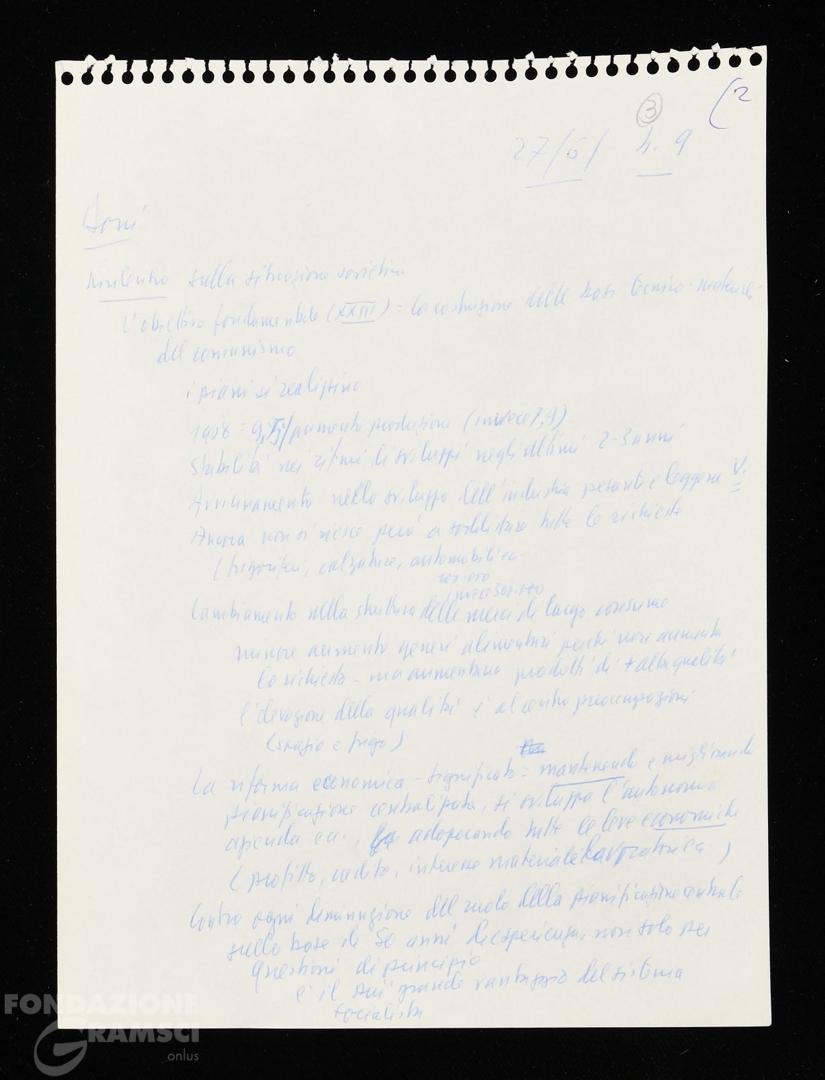 (2
③
27/6/ h. 9
sulla situazione sovietica
L'obiettivo fondamentale (XXIII) = la costruzione delle basi tecnico-materiali
del comunismo
i piani si realizzano
aumento produzione (invece 7,9)
Stabilità nei ritmi di sviluppo negli ultimi 2-3 anni
Avvicinamento nello sviluppo dell'industria pesante e leggera V.
Ancora non si riesce però a soddisfare tutte le richieste
(frigoriferi, calzature, automobili ecc.
Cambiamento nella struttura delle merci di largo consumo
minore aumento generi alimentari perché non aumenta
la richiesta - ma aumentano prodotti di + alta qualità
l'elevazione della qualità è al centro preoccupazioni
(spazio e
La riforma economica - significato = mantenendo e migliorando
pianificazione centralizzata, si sviluppa l'autonomia
azienda ecc., adoperando tutte le leve economiche
(profitto, credito, interesse materiale
Contro ogni diminuzione del ruolo della pianificazione centrale
sulla base di 50 anni di esperienza, non solo per
questioni di principio
è il più grande vantaggio del sistema
socialista
FONDAZIONE
GRAMSCI
onlus